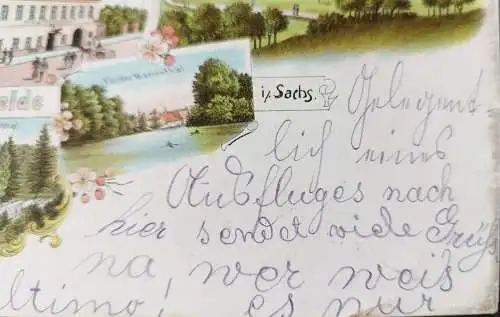 i/ Sachs.
Gelegent
lich eines
Ausfluges nach
hier sendet viele Grüß
na, wer weis
ltimo! es nur